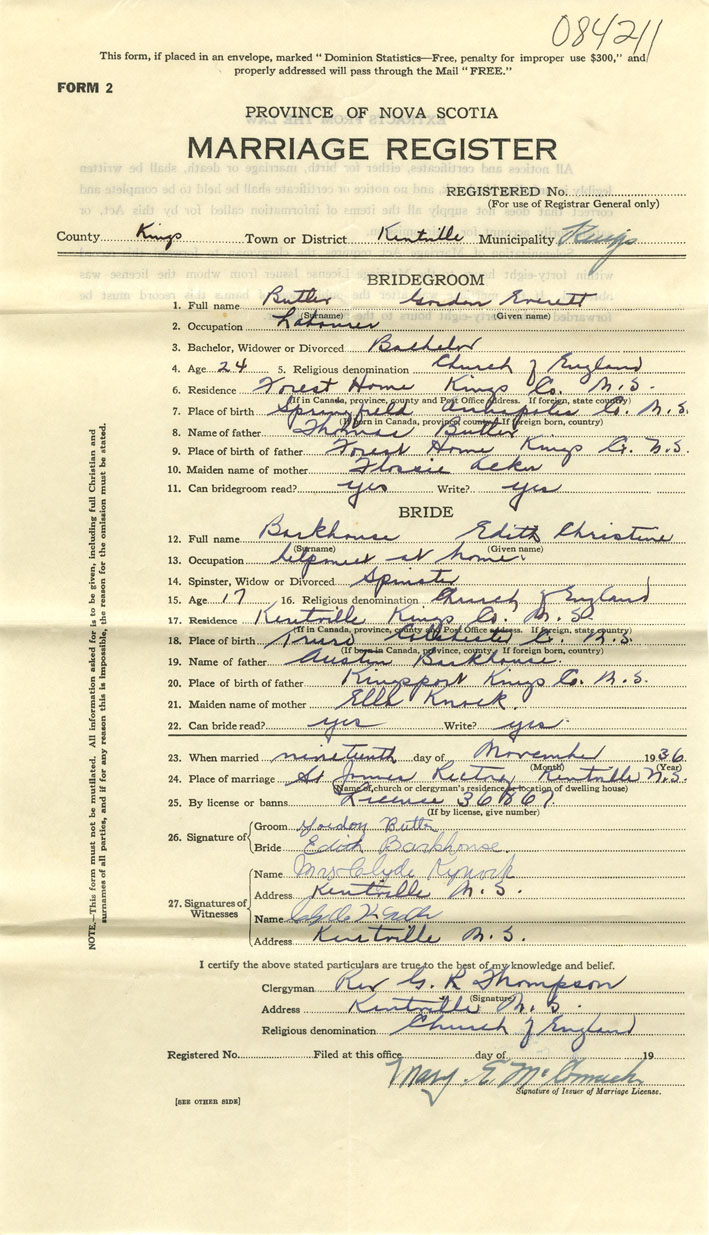 084211
This form, if placed in an envelope, marked "Dominion Statistics—Free, penalty for improper use $300," and
properly addressed will pass through the Mail "FREE."
FORM 2
PROVINCE OF NOVA SCOTIA
MARRIAGE REGISTER
REGISTERED No.
(For use of Registrar General only)
County Kings Town or District Kentville Municipality Kings
BRIDEGROOM
1. Full name Butler Gordon Everett
(Surname) (Given name)
2. Occupation Labourer
3. Bachelor, Widower or Divorced Bachelor
4. Age 24 5. Religious denomination Church of England
6. Residence Forest Home Kings Co. N.S.
(If in Canada, province, county and Post Office address. If foreign, state country)
7. Place of birth Springfield Annapolis Co. N.S.
(If born in Canada, province, county. If foreign born, country)
8. Name of father Thomas Butler
9. Place of birth of father Forest Home Kings Co. N.S.
10. Maiden name of mother Flossie
11. Can bridegroom read? yes Write? yes
BRIDE
12. Full name Barkhouse Edith Christine
(Surname) (Given name)
13. Occupation helpmeet at home.
14. Spinster, Widow or Divorced Spinster
15. Age 17 16. Religious denomination Church of England
17. Residence Kentville Kings Co. N.S.
(If in Canada, province, county and Post Office address. If foreign, state country)
18. Place of birth Truro Colchester Co. N.S.
(If born in Canada, province, county. If foreign born, country)
19. Name of father Austin Barkhouse.
20. Place of birth of father Kingsport Kings Co. N.S.
21. Maiden name of mother Ella
22. Can bride read? yes Write? yes
23. When married nineteenth day of November 1936
(Month) (Year)
24. Place of marriage St James Rectory Kentville N.S.
(Name of church or clergyman's residence or location of dwelling house)
25. By license or banns License 36867
(If by license, give number)
26. Signature of Groom Gordon Butler
Bride Edith Barkhouse.
27. Signatures of Witnesses Name Mrs Clyde
Address Kentville N.S.
Name
Address Kentville N.S.
I certify the above stated particulars are true to the best of my knowledge and belief.
Clergyman Rev G. R Thompson
(Signature)
Address Kentville N.S.
Religious denomination Church of England
Registered No. Filed at this office day of 19
Mary E. McCormack
Signature of Issuer of Marriage License.
[SEE OTHER SIDE]
NOTE.—This form must not be mutilated. All information asked for is to be given, including full Christian and
surnames of all parties, and if for any reason this is impossible, the reason for the omission must be stated.